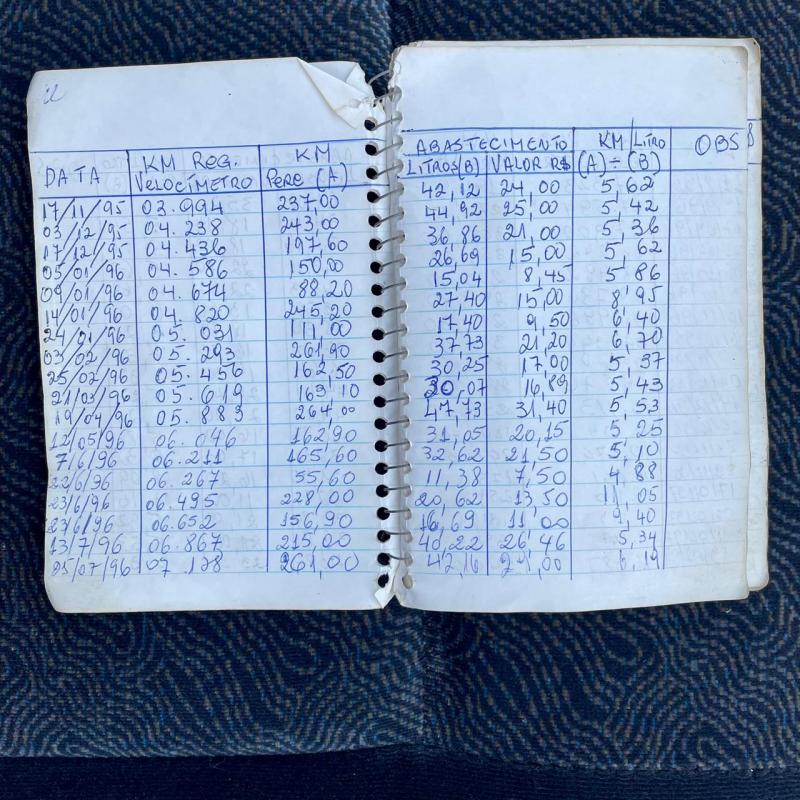 DATA KM REG. VELOCÍMETRO KM PERC (A) ABASTECIMENTO LITROS (B) VALOR R$ KM/LITRO (A) ÷ (B) OBS
17/11/95 03.994 237,00 42,12 24,00 5,62
03/12/95 04.238 243,00 44,92 25,00 5,42
17/12/95 04.436 197,60 36,86 21,00 5,36
05/01/96 04.586 150,00 26,69 15,00 5,62
09/01/96 04.674 88,20 15,04 8,45 5,86
14/01/96 04.820 245,20 27,40 15,00 8,95
24/01/96 05.031 111,00 17,40 9,50 6,40
03/02/96 05.293 261,90 37,73 21,20 6,70
25/02/96 05.456 162,50 30,25 17,00 5,37
21/03/96 05.619 163,10 30,07 16,89 5,43
19/04/96 05.883 264,00 47,73 31,40 5,53
12/05/96 06.046 162,90 31,05 20,15 5,25
7/6/96 06.211 165,60 32,62 21,50 5,10
22/6/96 06.267 55,60 11,38 7,50 4,88
23/6/96 06.495 228,00 20,62 13,50 11,05
27/6/96 06.652 156,90 16,69 11,00 9,40
13/7/96 06.867 215,00 40,22 26,46 5,34
25/07/96 07.128 261,00 42,16 27,00 6,19